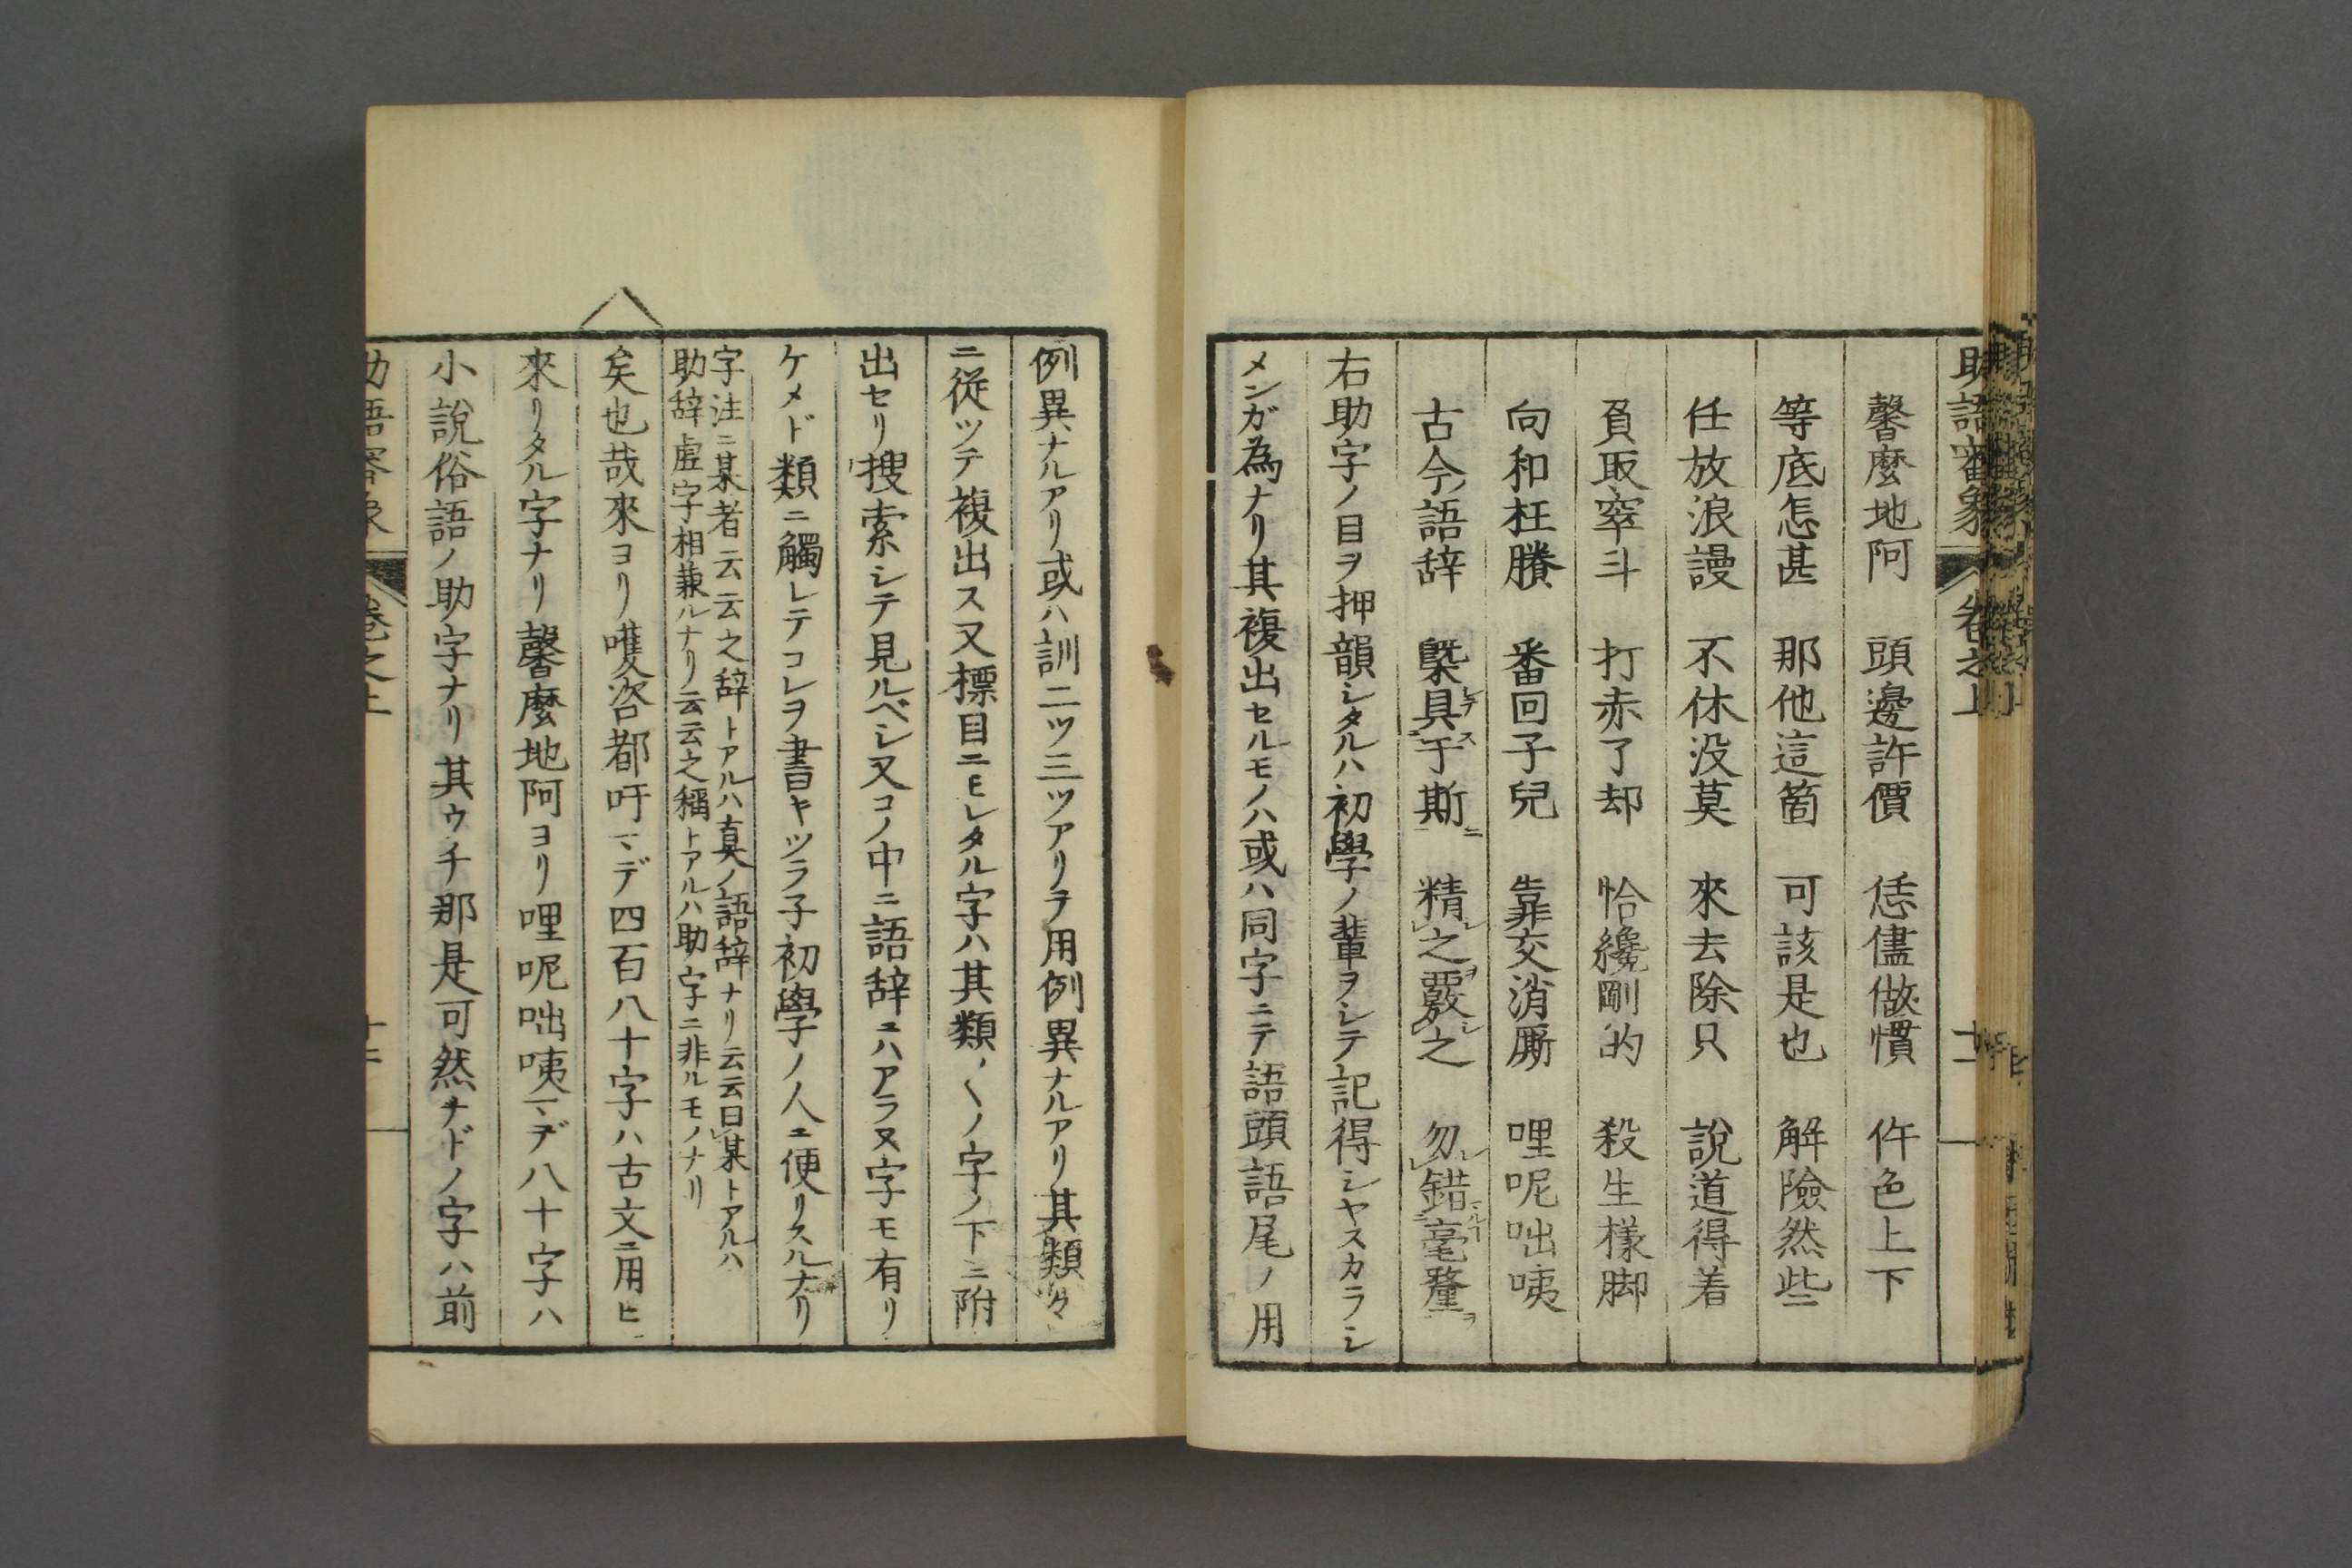 助語審象 卷之上 十二
馨麼地阿 頭邊許價 恁儘做慣 仵色上下
等底怎甚 那他這箇 可該是也 解險然些
任放浪謾 不休没莫 來去除只 說道得着
負取窣斗 打赤了却 恰纔剛的 殺生樣脚
向和枉賸 番回子兒 靠交消厮 哩呢咄咦
古今語辞 槩具于斯 精之覈之 勿錯毫釐
右助字ノ目ヲ押韻シタルハ初學ノ輩ヲシテ記得シヤスカラシ
メンガ為ナリ其複出セルモノハ或ハ同字ニテ語頭語尾ノ用
例異ナルアリ或ハ訓二ツ三ツアリテ用例異ナルアリ其類々
ニ従ツテ複出ス又標目ニモレタル字ハ其類〱ノ字ノ下ニ附
出セリ搜索シテ見ルベシ又コノ中ニ語辞ニハアラヌ字モ有リ
ケメド類ニ觸レテコレヲ書キツラ子初學ノ人ニ便リスルナリ
字注ニ某者云云之辞トアルハ真ノ語辞ナリ云云曰某トアルハ
助辞虛字相兼ルナリ云云之稱トアルハ助字ニ非ルモノナリ
矣也哉來ヨリ嚄咨都吁マデ四百八十字ハ古文ニ用ヒ
來リタル字ナリ馨麼地阿ヨリ哩呢咄咦マデ八十字ハ
小說俗語ノ助字ナリ其ウチ那是可然ナドノ字ハ前
助語審象 卷之上